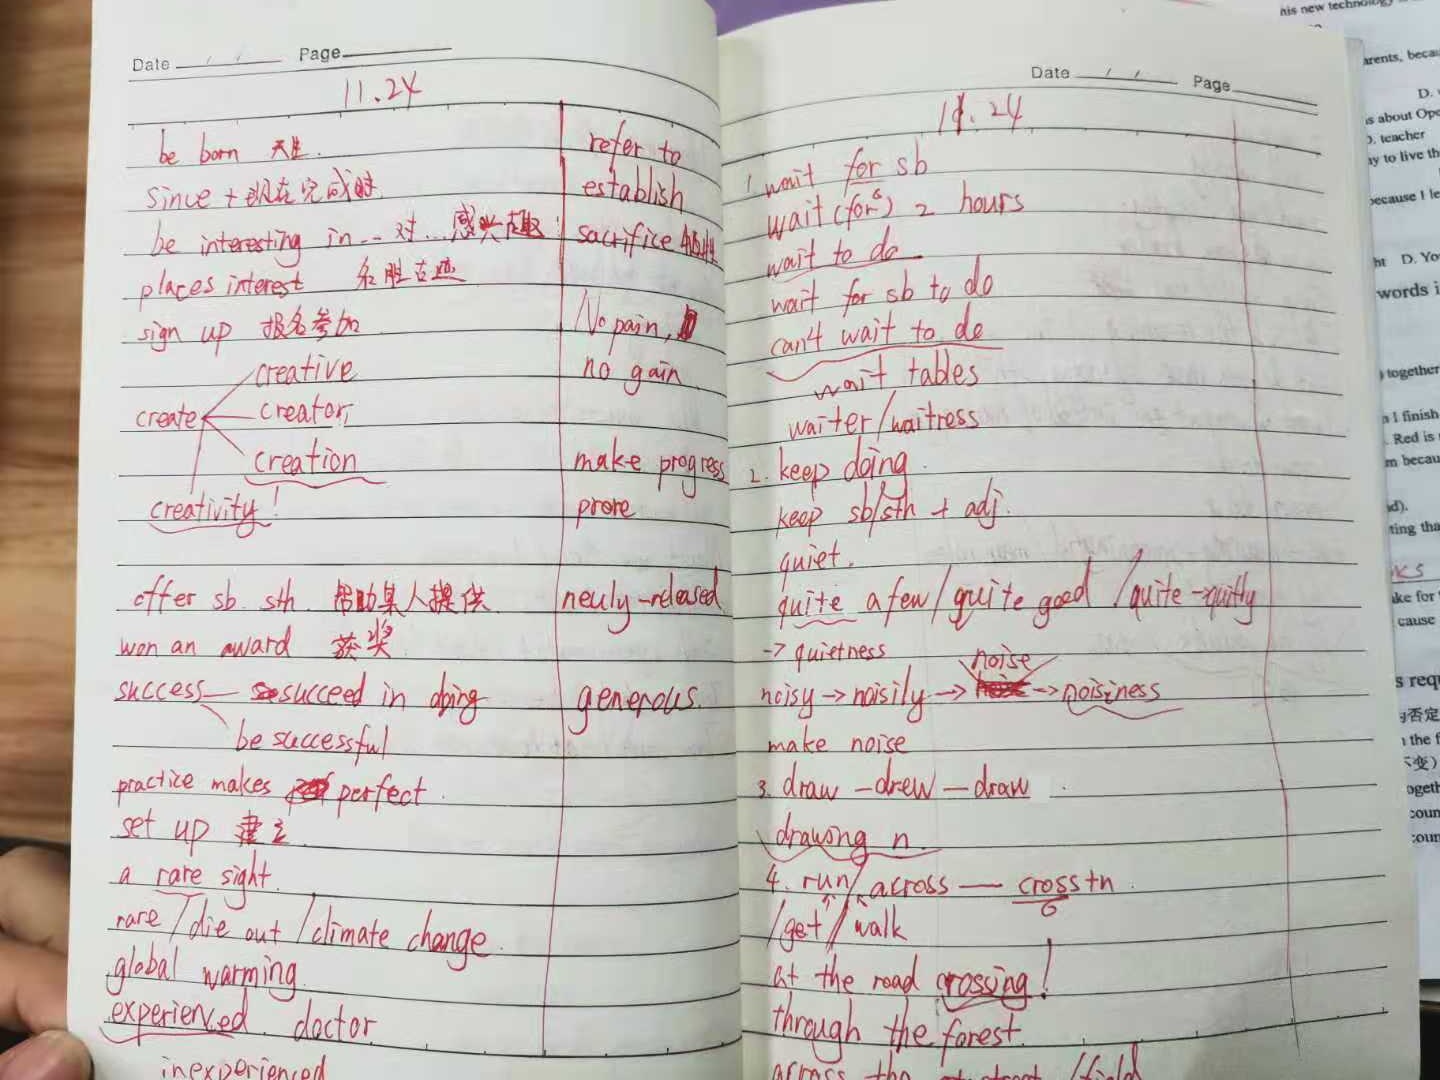 Date / / Page
11.24
be born 天生.
since + 现在完成时.
be interesting in ... 对...感兴趣
places interest 名胜古迹
sign up 报名参加
creative
create creator,
creation
creativity!
offer sb. sth. 帮助某人提供
won an award 获奖
success succeed in doing
be successful
practice makes perfect.
set up 建立
a rare sight.
rare / die out / climate change.
global warming.
experienced doctor
inexperienced
refer to
establish
sacrifice 牺牲
No pain,
no gain
make progress
prove
newly-released
generous.
Date / / Page
11.24
1. wait for sb
wait (for) 2 hours
wait to do
wait for sb to do
can't wait to do
wait tables
waiter/waitress
2. keep doing.
keep sb/sth + adj.
quiet.
quite a few / quite good / quite →
→ quietness
noise
noisy → noisily → → noisiness
make noise
3. draw - drew - draw
drawing n.
4. run/ across — cross + n.
/get / walk
at the road crossing!
through the forest.
across the street /field
his new technology is
arents, becau
D.
s about Ope
D. teacher
ay to live th
because I le
ht D. Yo
words i
together
n I finish
. Red is
m becau
id).
ting tha
ke for
cause
s requ
与否定
n the f
不变)
ogeth
coun
coun